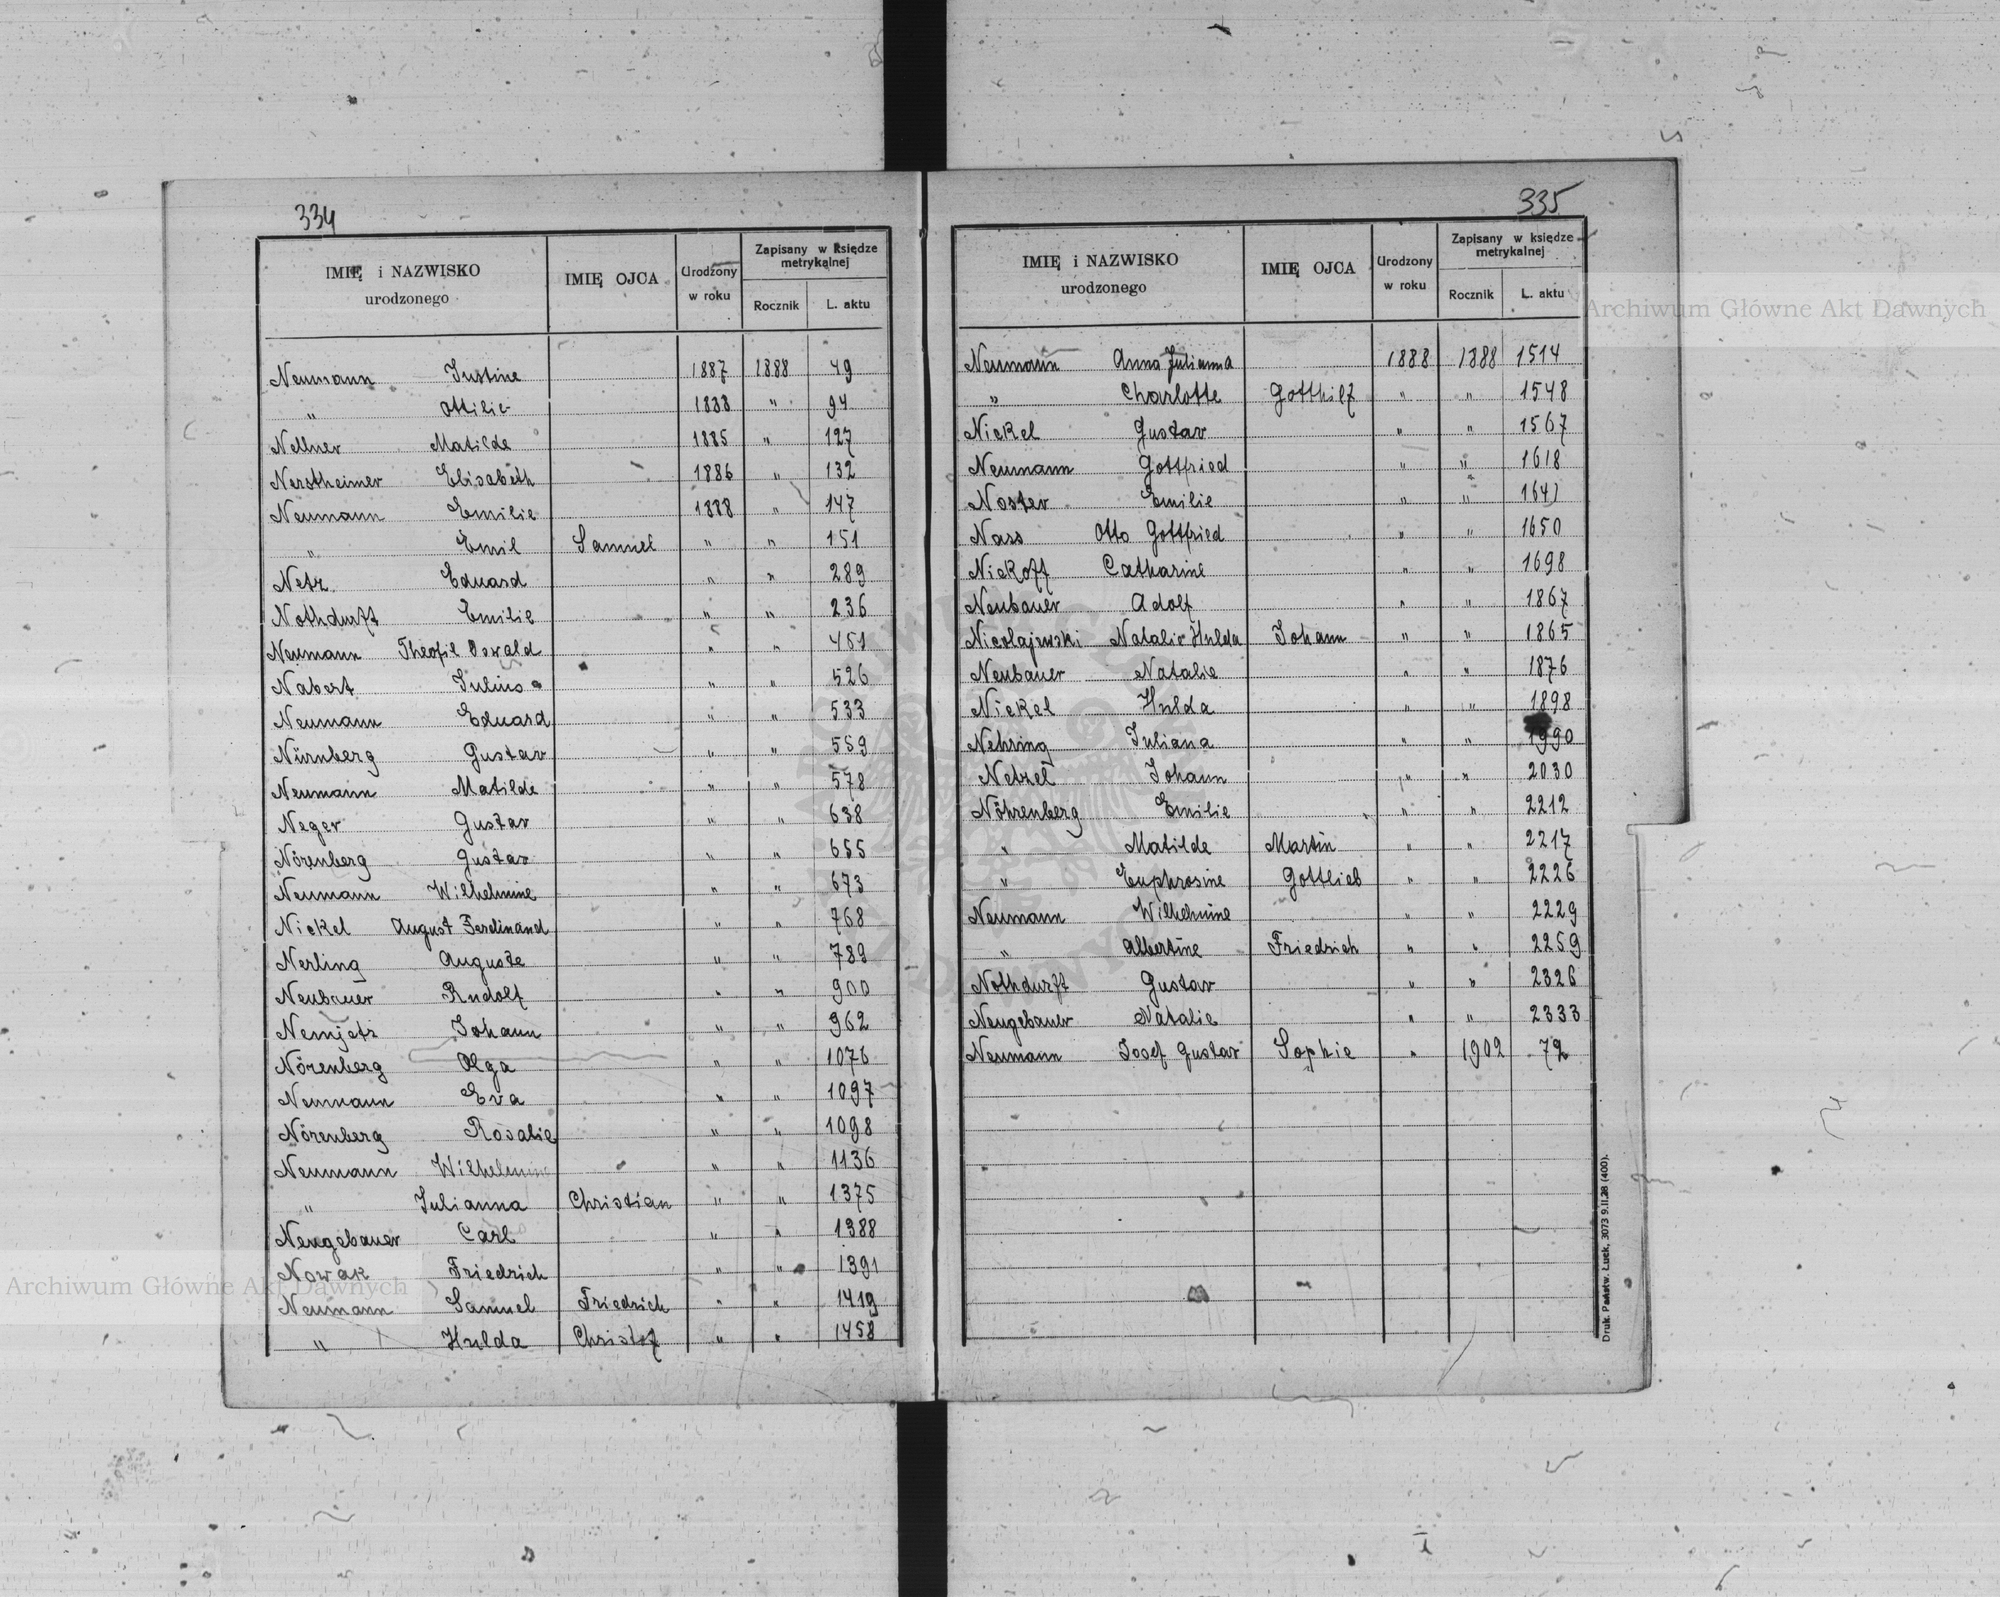 334
IMIĘ i NAZWISKO urodzonego IMIĘ OJCA Urodzony w roku Zapisany w księdze metrykalnej Rocznik L. aktu
Neumann Justine 1887 1888 49
" Ottilie 1888 " 94
Nellner Matilde 1885 " 127
Nerstheimer Elisabeth 1886 " 132
Neumann Emilie 1888 " 147
" Emil Samuel " " 151
Netz Eduard " " 289
Nothdurft Emilie " " 236
Neumann Theofil Oswald " " 451
Nabert Julius " " 526
Neumann Eduard " " 533
Nürnberg Gustav " " 559
Neumann Matilde " " 578
Neger Gustav " " 638
Nörenberg Gustav " " 655
Neumann Wilhelmine " " 673
Nickel August Ferdinand " " 768
Nerling Auguste " " 789
Neubauer Rudolf " " 900
Nemjetz Johann " " 962
Nörenberg Olga " " 1076
Neumann Eva " " 1097
Nörenberg Rosalie " " 1098
Neumann Wilhelmine " " 1136
" Julianna Christian " " 1375
Neugebauer Carl " " 1388
Nowak Friedrich " " 1391
Neumann Samuel Friedrich " " 1419
" Hulda Christof " " 1458
335
IMIĘ i NAZWISKO urodzonego IMIĘ OJCA Urodzony w roku Zapisany w księdze metrykalnej Rocznik L. aktu
Neumann Anna Julianna 1888 1888 1514
" Charlotte Gotthilf " " 1548
Nickel Gustav " " 1567
Neumann Gottfried " " 1618
Noster Emilie " " 1641
Nass Otto Gottfried " " 1650
Nickoff Catharine " " 1698
Neubauer Adolf " " 1867
Nicolajewski Natalie Hulda Johann " " 1865
Neubauer Natalie " " 1876
Nickel Hulda " " 1898
Nehring Juliana " " 1990
Netzel Johann " " 2030
Nöhrenberg Emilie " " 2212
" Matilde Martin " " 2217
" Euphrosine Gottlieb " " 2226
Neumann Wilhelmine " " 2229
" Albertine Friedrich " " 2259
Nothdurft Gustav " " 2326
Neugebauer Natalie " " 2333
Neumann Josef Gustav Sophie " 1902 72
Druk. Państw. Łuck, 3073 9.II.28 (400).
Archiwum Główne Akt Dawnych
Archiwum Główne Akt Dawnych